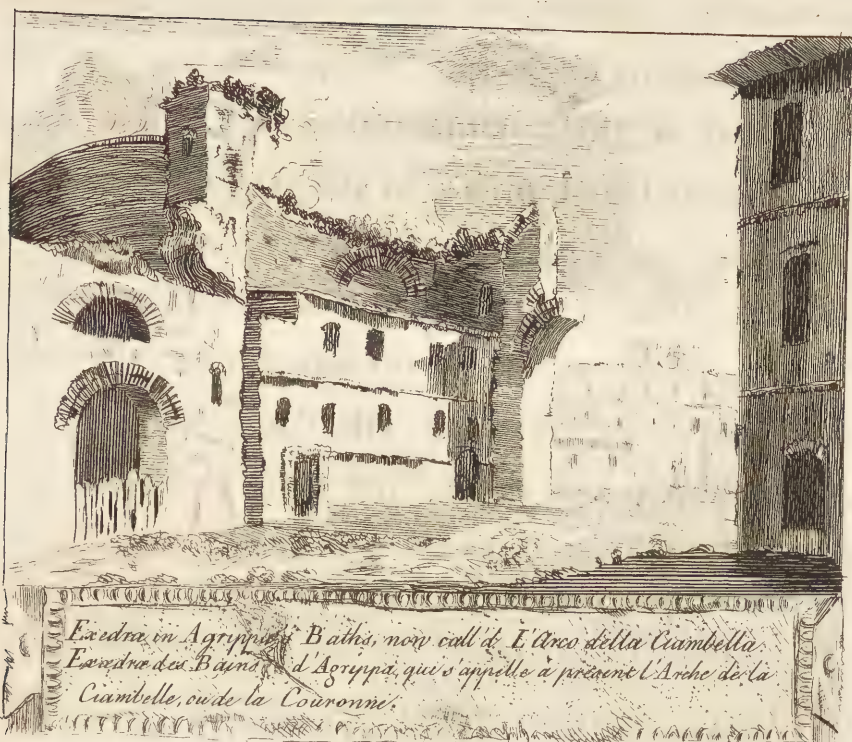 Exedræ in Agrippa's Baths, now call'd L'Arco della Ciambella.
Exædræ des Bains d'Agrippa, qui s'appelle à présent l'Arche de la
Ciambelle, ou de la Couronne.